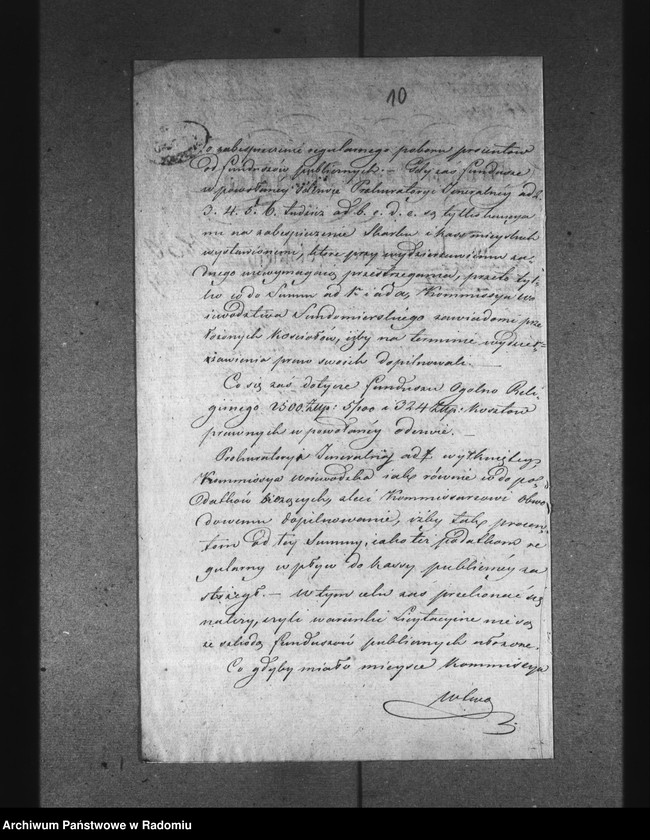 10
o zabespieczenie regularnego poboru procentów
od funduszów publicznych. — Gdy zaś fundusze
w powołaney Prokuratoryi Jeneralnéy ad 2.
3. 4. 5. 6. tudzież ad b. c. d. e. są tylko
mi na zabespieczenie Skarbu i kass mieyskich
wystawionemi, które przy wydzierżawieniu ża-
dnego niewymagaią przestrzegania, przeto tyl-
ko co do Summ ad 1 i ad a, Kommissya Wo-
iewództwa Sandomierskiego zawiadomi prze-
łożonych Kościołów, iżby na terminie wydzier-
żawienia praw swoich dopilnowali. —
Co się zaś dotycze funduszu Ogólno Reli-
giinego 2500 Złłp: 5 proo i 324 Złłp: kosztów
prawnych w powołanéy odezwie. —
Prokuratoryi Jeneralnéy ad wytkniętey,
Kommissya woiewódzka iak równie co do po-
datków bieżących, zleci Kommissarzowi Obwo-
dowemu dopilnowanie, iżby tak procen-
tom od téy Summy, iako téż podatkom re-
gularny wpływ do kassy publicznéy za-
strzegł. — W tym celu zaś przekonać się
należy, czyli warunki Licytacyine nie są
ze szkodą funduszów publicznych ułożone.
Co gdyby miało mieysce Kommissya
Archiwum Państwowe w Radomiu